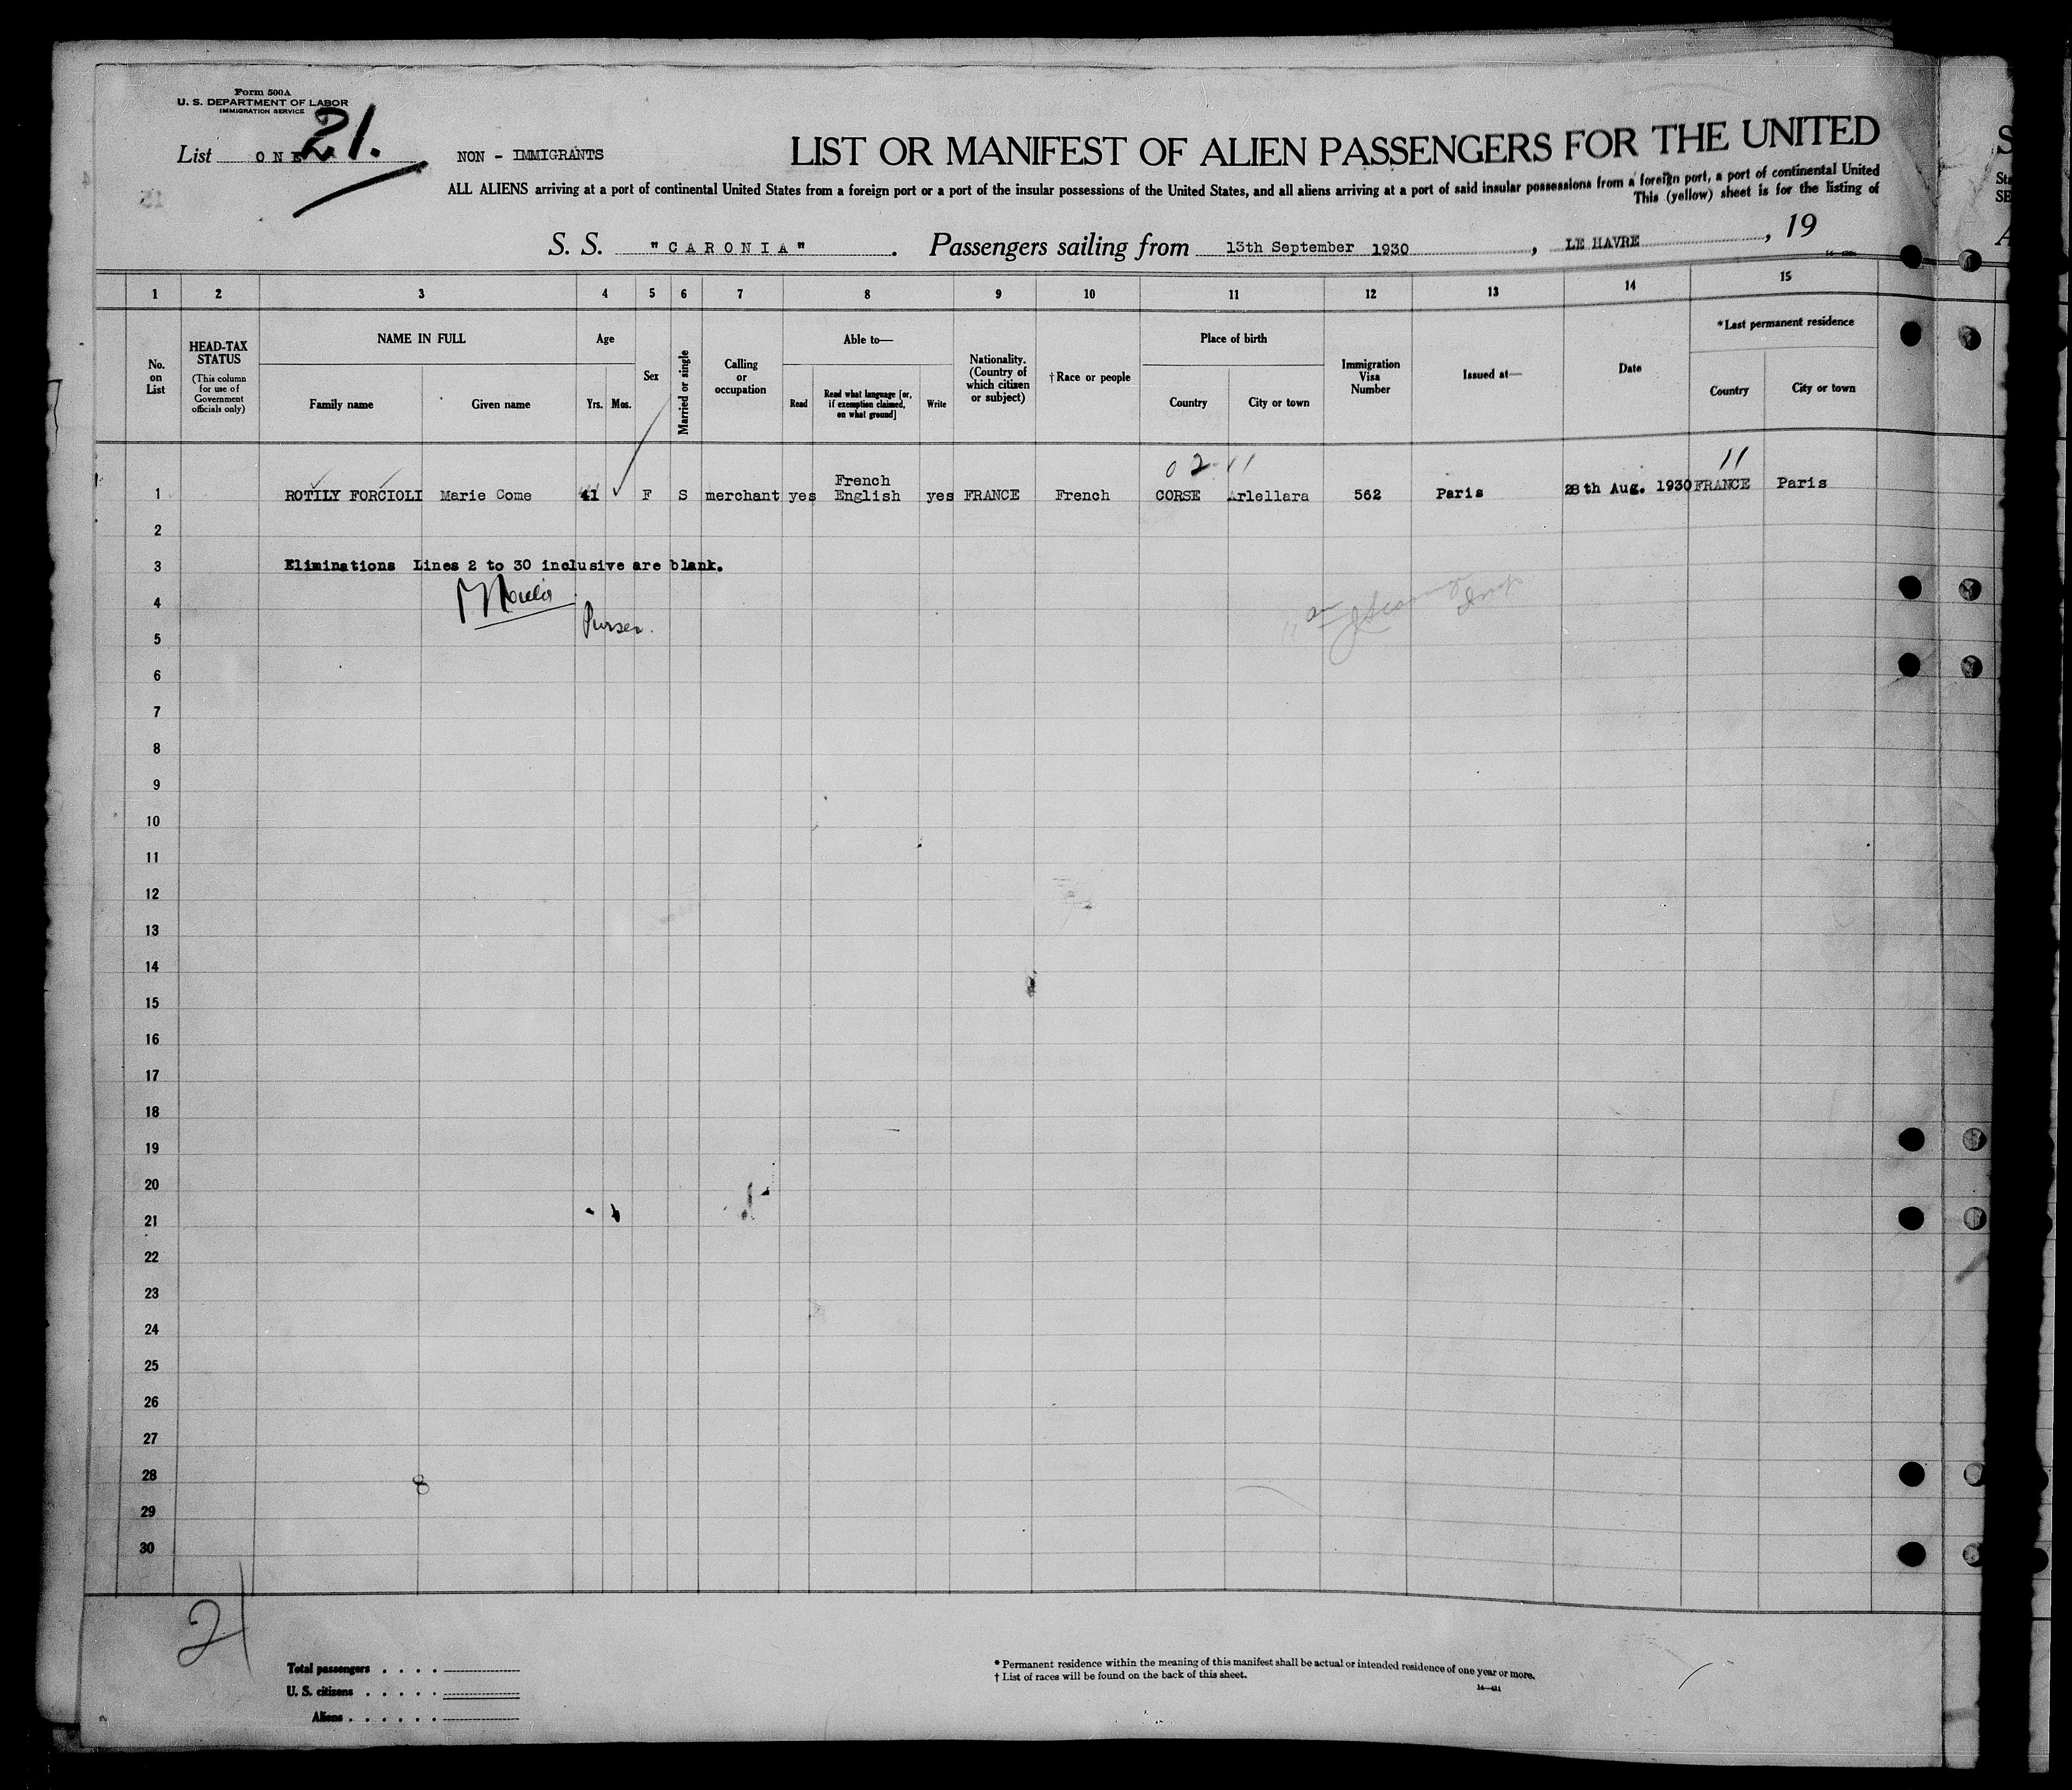 Form 500A
U. S. DEPARTMENT OF LABOR
IMMIGRATION SERVICE
List ONE 21.
NON - IMMIGRANTS
LIST OR MANIFEST OF ALIEN PASSENGERS FOR THE UNITED
ALL ALIENS arriving at a port of continental United States from a foreign port or a port of the insular possessions of the United States, and all aliens arriving at a port of said insular possessions from a foreign port, a port of continental United
This (yellow) sheet is for the listing of
S. S. "CARONIA". Passengers sailing from 13th September 1930, LE HAVRE, 19
1 2 3 4 5 6 7 8 9 10 11 12 13 14 15
No. on List
HEAD-TAX STATUS
(This column for use of Government officials only)
NAME IN FULL
Family name
Given name
Age
Yrs. Mos.
Sex
Married or single
Calling or occupation
Able to—
Read
Read what language [or, if exemption claimed, on what ground]
Write
Nationality. (Country of which citizen or subject)
† Race or people
Place of birth
Country
City or town
Immigration Visa Number
Issued at—
Date
*Last permanent residence
Country
City or town
02 11
11
French
1 ROTILY FORCIOLI Marie Come 41 F S merchant yes English yes FRANCE French CORSE Arlellara 562 Paris 28th Aug. 1930 FRANCE Paris
2
3 Eliminations Lines 2 to 30 inclusive are blank.
4
Purser.
5
6
7
8
9
10
11
12
13
14
15
16
17
18
19
20
21
22
23
24
25
26
27
28
8
29
30
21
Total passengers . . . .
U. S. citizens . . . . .
Aliens . . . . . .
* Permanent residence within the meaning of this manifest shall be actual or intended residence of one year or more.
† List of races will be found on the back of this sheet.